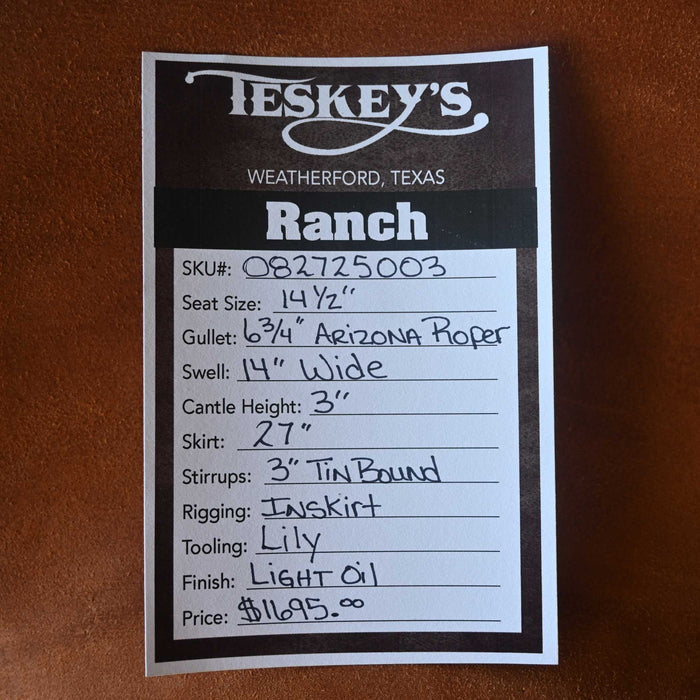 TESKEY'S
WEATHERFORD, TEXAS
Ranch
SKU#: 082725003
Seat Size: 14 1/2"
Gullet: 6 3/4" ARIZONA Roper
Swell: 14" Wide
Cantle Height: 3"
Skirt: 27"
Stirrups: 3" TIN BOUND
Rigging: INSKirt
Tooling: Lily
Finish: LIGHT Oil
Price: $1695.00